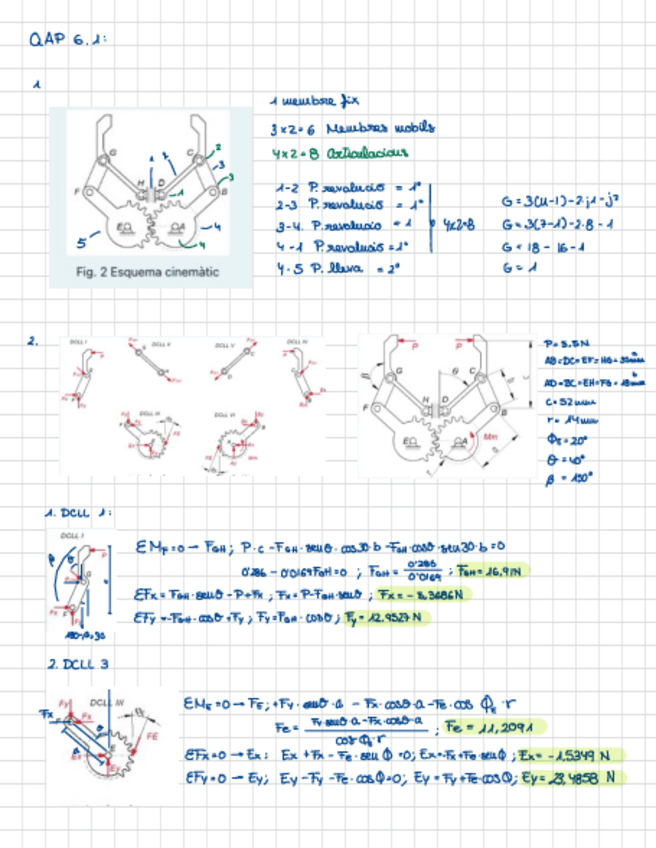 QAP 6.1:
1
1 membre fix
3x2=6 Membres mobils
4x2=8 Articulacions
1-2 P. revolució = 1º
2-3 P. revolució = 1º
3-4 P. revolució = 1
4-1 P. revolució = 1º
4x2=8
4-5 P. lleva = 2º
G = 3(N-1)-2·j1-j2
G = 3(7-1)-2·8-1
G = 18-16-1
G = 1
G C 2
1 2 3
H D 1 3
F B
E A 4
5 4
Fig. 2 Esquema cinemàtic
2.
DCLL I DCLL II DCLL V DCLL IV
DCLL III DCLL VI
P P
G θ C
H D
F B
E A Mm
AD=BC=EH=FG=18mm
c=52mm
r=14mm
θ=40º
1. DCLL 1:
DCLL I
ΣMF=0 → FGH; P·c-FGH·senθ·cos30·b-FGH·cosθ·sen30·b=0
0'286-0'0169FGH=0; FGH= 0'286/0'0169; FGH=16,91N
ΣFx=FGH·senθ-P+Fx; Fx=P-FGH·senθ; Fx=-8,3686N
ΣFy=-FGH·cosθ+Fy; Fy=FGH·cosθ; Fy=12,9527N
2. DCLL 3
DCLL III
ΣME=0 → FE; +Fy·senθ·a - Fx·cosθ·a-Fe·cos ΦE·r
Fe= Fy·senθ·a-Fx·cosθ·a / cosΦE·r; Fe=11,2091
ΣFx=0 → Ex; Ex+Fx-Fe·senΦ=0; Ex=-Fx+Fe·senΦ; Ex=-1,5349 N
ΣFy=0 → Ey; Ey-Fy-Fe·cosΦ=0; Ey=Fy+Fe·cosΦ; Ey=23,4858 N